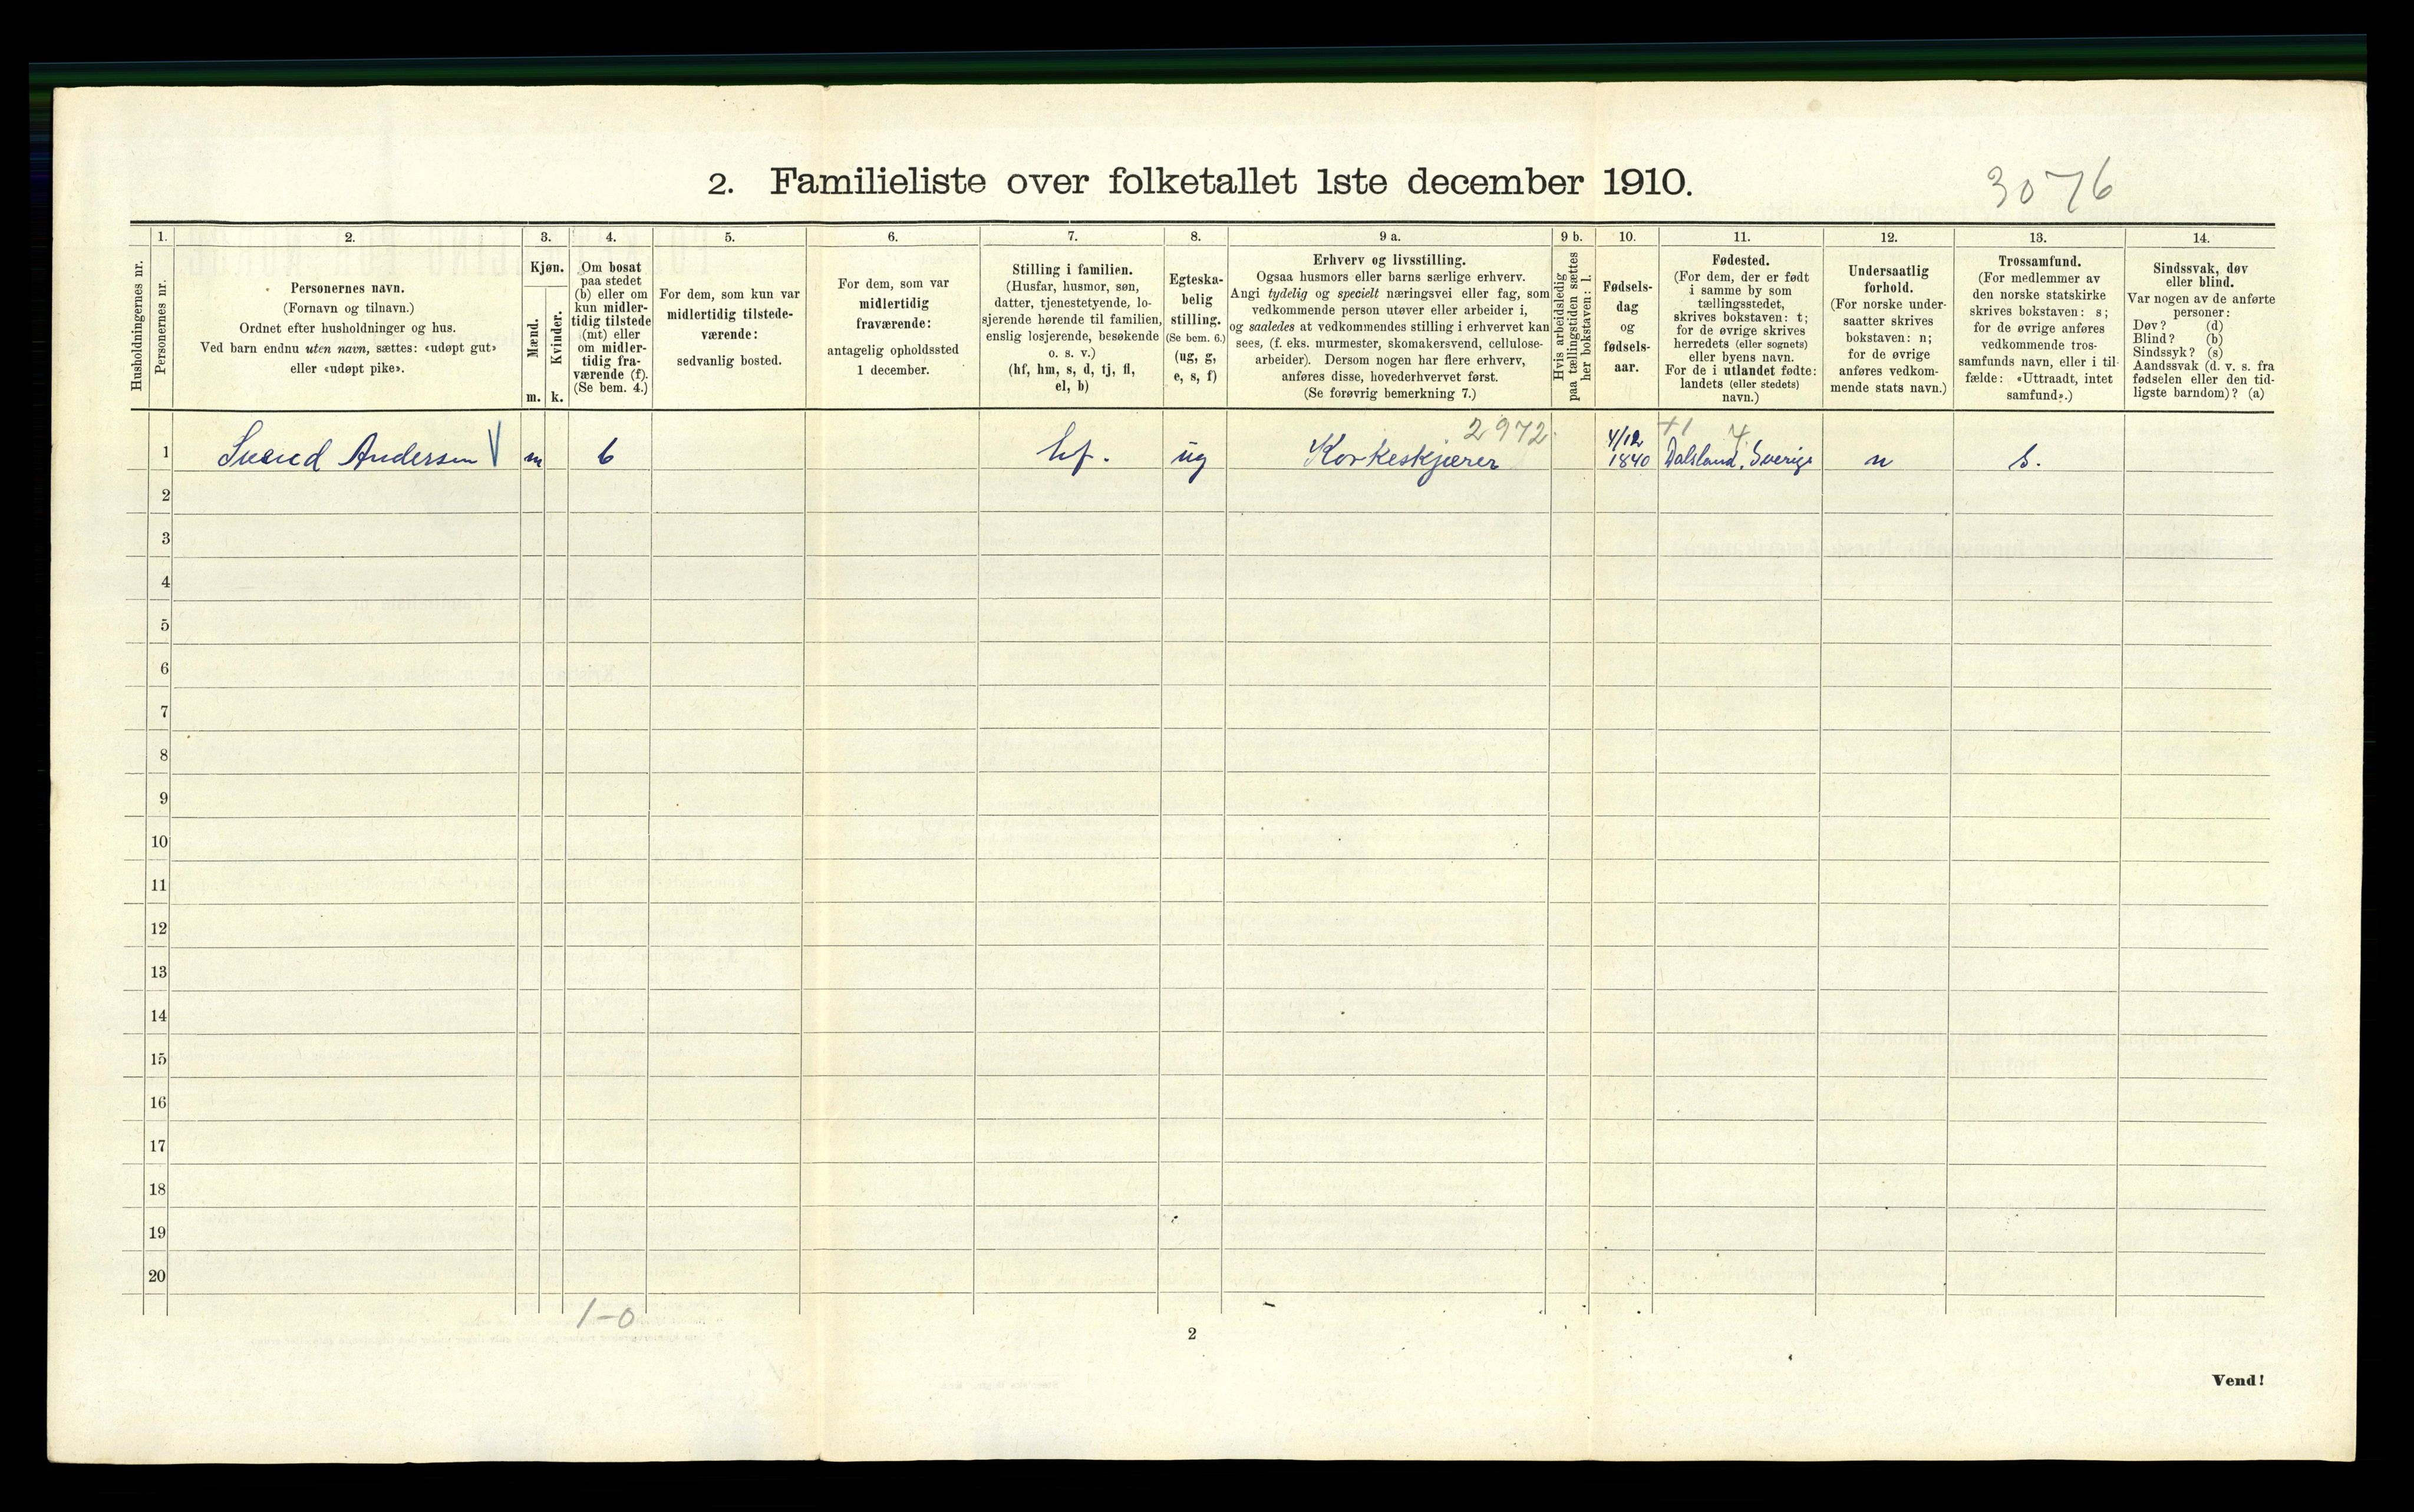 2. Familieliste over folketallet 1ste december 1910.
3076
1. 2. 3. 4. 5. 6. 7. 8. 9 a. 9 b. 10. 11. 12. 13. 14.
Husholdningernes nr.
Personernes nr.
Personernes navn.
(Fornavn og tilnavn.)
Ordnet efter husholdninger og hus.
Ved barn endnu uten navn, sættes: «udøpt gut»
eller «udøpt pike».
Kjøn.
Mænd.
Kvinder.
m. k.
Om bosat
paa stedet
(b) eller om
kun midler-
tidig tilstede
(mt) eller
om midler-
tidig fra-
værende (f).
(Se bem. 4.)
For dem, som kun var
midlertidig tilstede-
værende:
sedvanlig bosted.
For dem, som var
midlertidig
fraværende:
antagelig opholdssted
1 december.
Stilling i familien.
(Husfar, husmor, søn,
datter, tjenestetyende, lo-
sjerende hørende til familien,
enslig losjerende, besøkende
o. s. v.)
(hf, hm, s, d, tj, fl,
el, b)
Egteska-
belig
stilling.
(Se bem. 6.)
(ug, g,
e, s, f)
Erhverv og livsstilling.
Ogsaa husmors eller barns særlige erhverv.
Angi tydelig og specielt næringsvei eller fag, som
vedkommende person utøver eller arbeider i,
og saaledes at vedkommendes stilling i erhvervet kan
sees, (f. eks. murmester, skomakersvend, cellulose-
arbeider). Dersom nogen har flere erhverv,
anføres disse, hovederhvervet først.
(Se forøvrig bemerkning 7.)
Hvis arbeidsledig
paa tællingstiden sættes
her bokstaven: l.
Fødsels-
dag
og
fødsels-
aar.
Fødested.
(For dem, der er født
i samme by som
tællingsstedet,
skrives bokstaven: t;
for de øvrige skrives
herredets (eller sognets)
eller byens navn.
For de i utlandet fødte:
landets (eller stedets)
navn.)
Undersaatlig
forhold.
(For norske under-
saatter skrives
bokstaven: n;
for de øvrige
anføres vedkom-
mende stats navn.)
Trossamfund.
(For medlemmer av
den norske statskirke
skrives bokstaven: s;
for de øvrige anføres
vedkommende tros-
samfunds navn, eller i til-
fælde: «Uttraadt, intet
samfund».)
Sindssvak, døv
eller blind.
Var nogen av de anførte
personer:
Døv? (d)
Blind? (b)
Sindssyk? (s)
Aandssvak (d. v. s. fra
fødselen eller den tid-
ligste barndom)? (a)
2972
4/12
1 Svend Andersen m b hf. ug Korkeskjærer 1840 Dalsland, Sverige n s.
2
3
4
5
6
7
8
9
10
11
12
13
14
15
16
17
18
19
20
1-0
2
Vend!